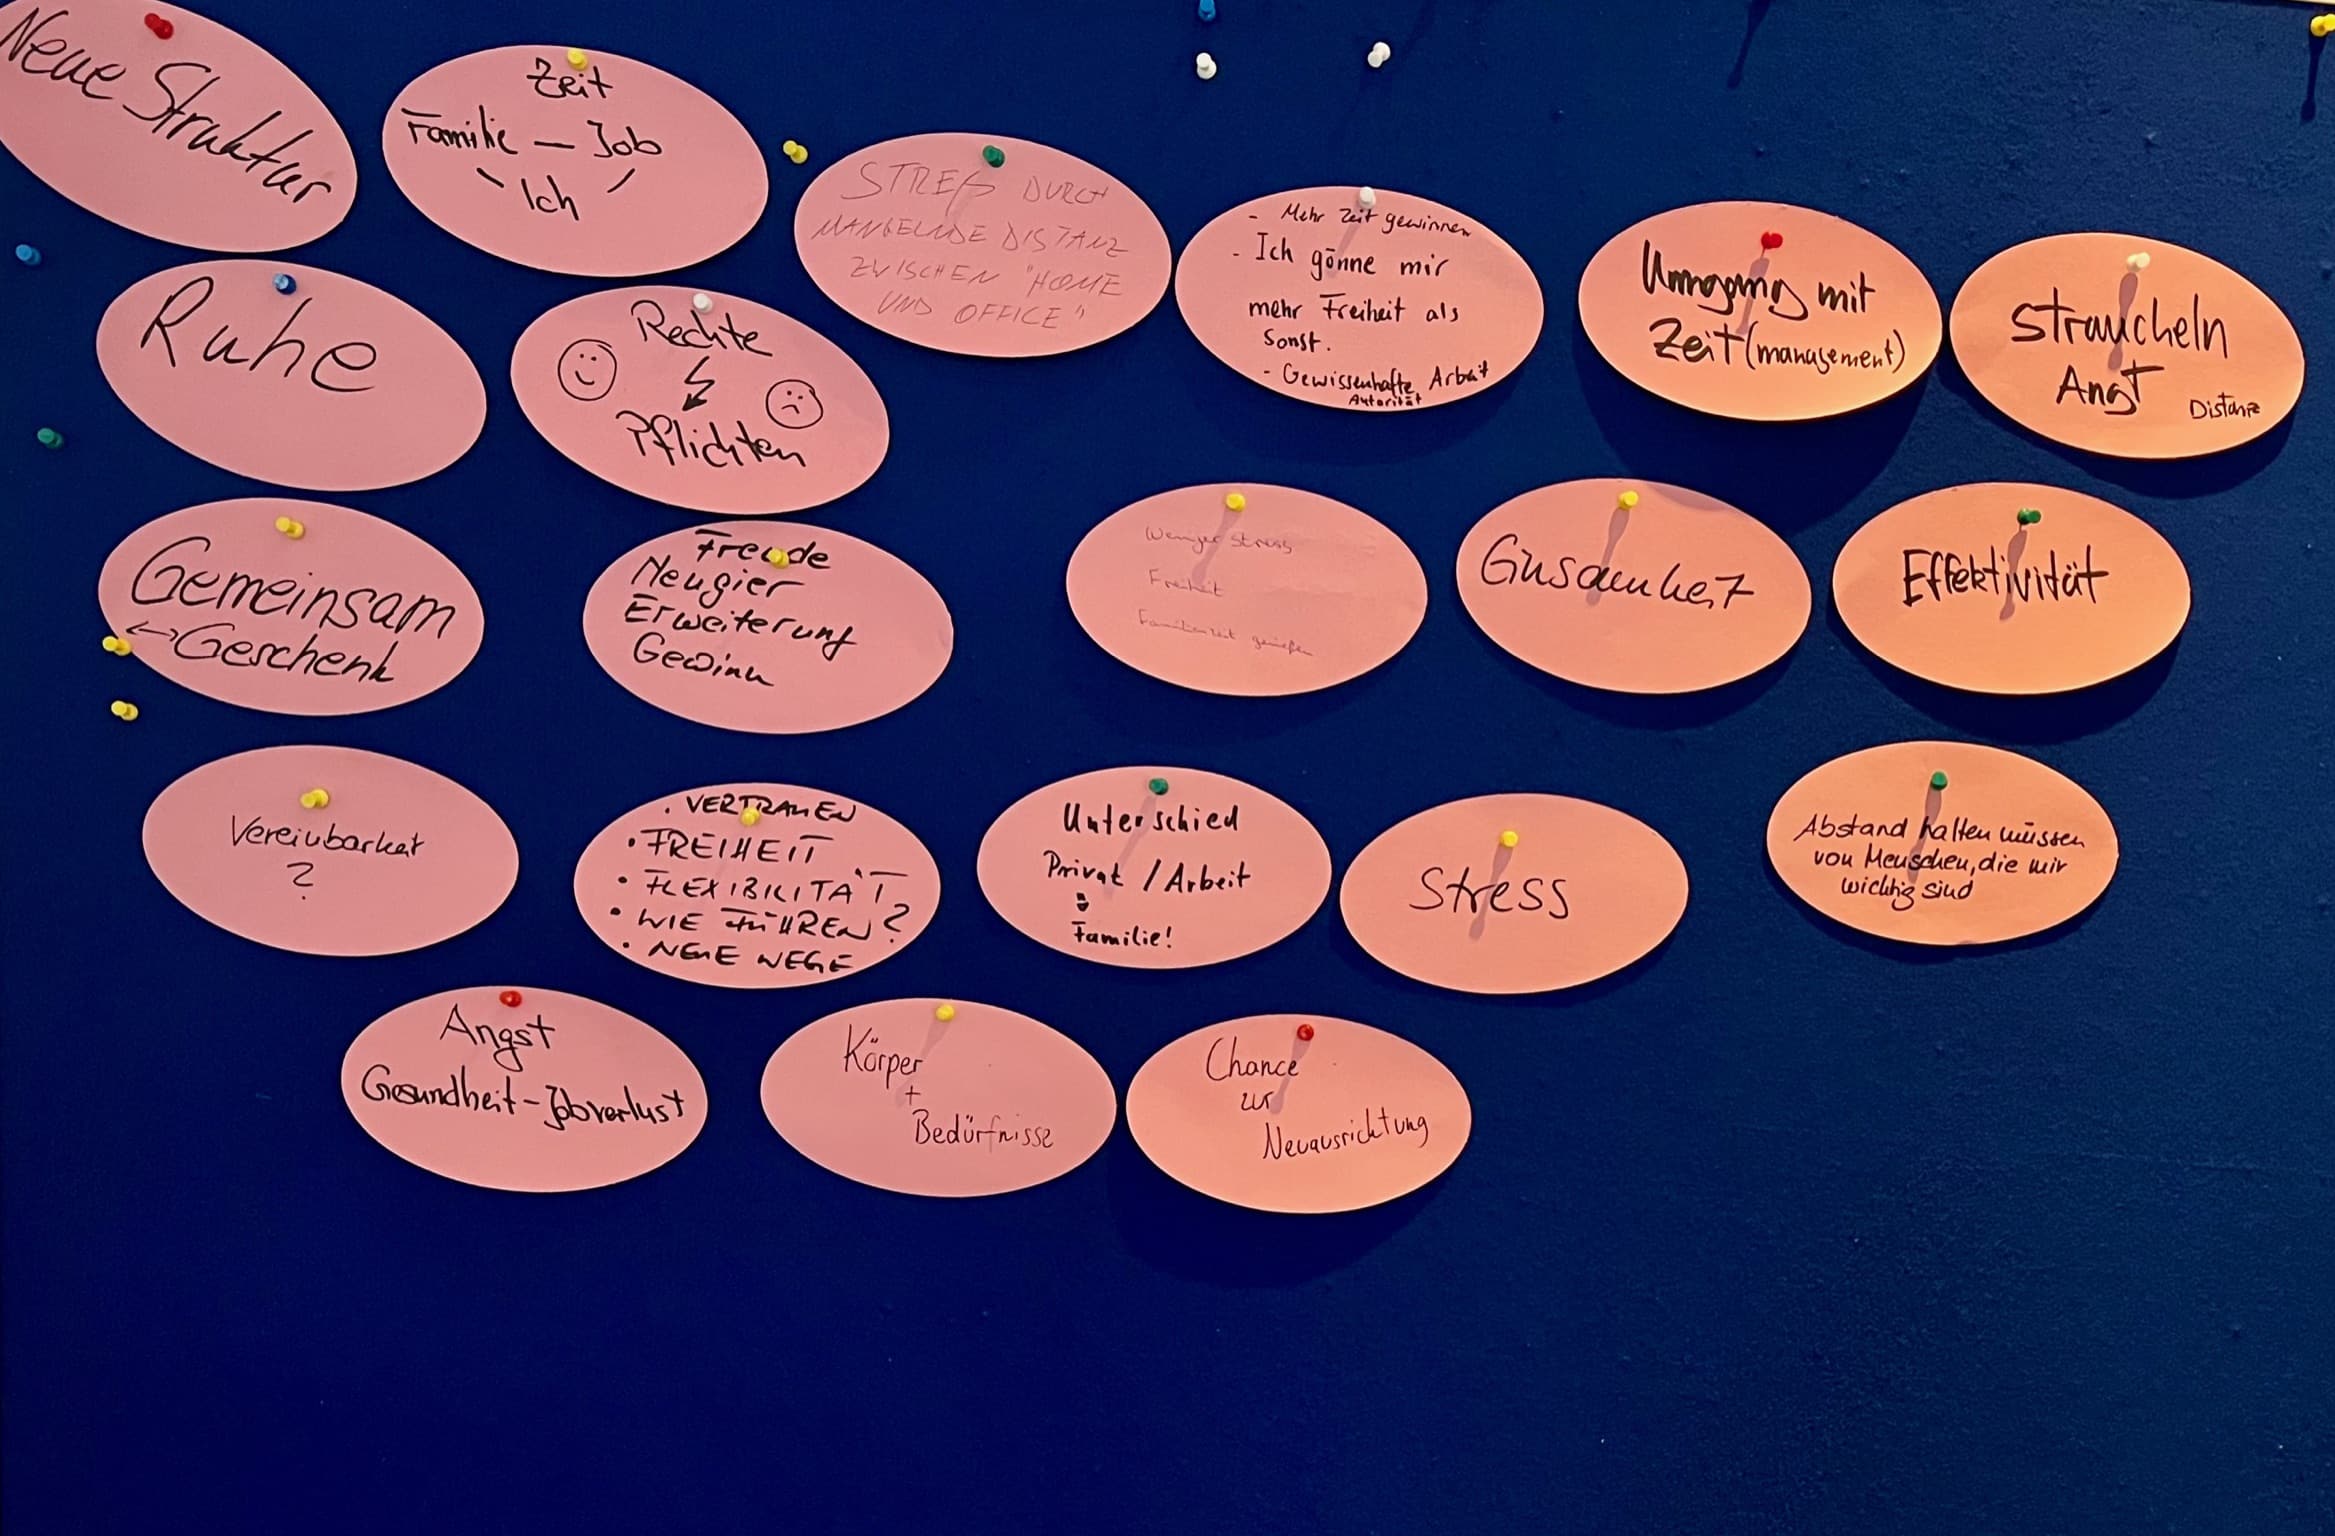 Neue Struktur
Zeit
Familie — Job
Ich
STREß DURCH
MANGELNDE DISTANZ
ZWISCHEN "HOME
UND OFFICE"
- Mehr Zeit gewinnen
- Ich gönne mir
mehr Freiheit als
Sonst.
- Gewissenhafte Arbeit
Autorität
Umgang mit
Zeit (management)
Straucheln
Angst
Distanz
Ruhe
Rechte
Pflichten
Gemeinsam
Geschenk
Freude
Neugier
Erweiterung
Gewinn
Weniger Stress
Freiheit
Familienzeit genießen
Einsamkeit
Effektivität
Vereinbarkeit
?
. VERTRAUEN
• FREIHEIT
• FLEXIBILITÄT
• WIE FÜHREN?
• NEUE WEGE
Unterschied
Privat / Arbeit
Familie!
Stress
Abstand halten müssen
von Menschen, die mir
wichtig sind
Angst
Gesundheit - Jobverlust
Körper
+
Bedürfnisse
Chance
zur
Neuausrichtung